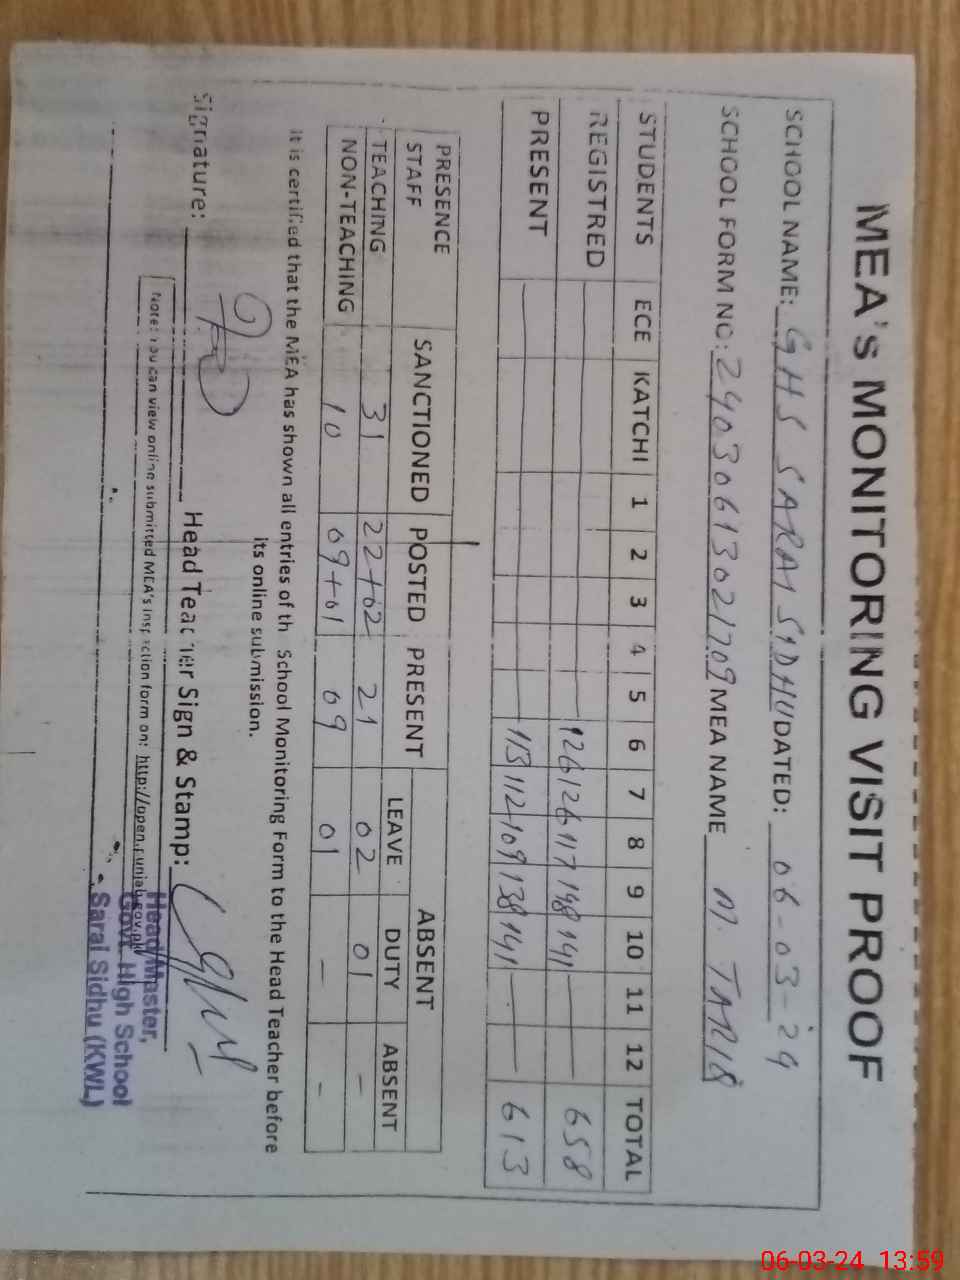 MEA's MONITORING VISIT PROOF
SCHOOL NAME: GHS SARAI SIDHU DATED: 06-03-24
SCHOOL FORM NO: 24030613021709 MEA NAME M. TARIQ
STUDENTS ECE KATCHI 1 2 3 4 5 6 7 8 9 10 11 12 TOTAL
REGISTRED — 126 126 117 148 141 — 658
PRESENT — 113 112 109 138 141 — 613
PRESENCE ABSENT
STAFF SANCTIONED POSTED PRESENT LEAVE DUTY ABSENT
TEACHING 31 22+02 21 02 01 -
NON-TEACHING 10 09+01 09 01 - -
It is certified that the MEA has shown all entries of th School Monitoring Form to the Head Teacher before
its online submission.
Signature: Head Teacher Sign & Stamp:
Note: You can view online submitted MEA's Inspection form on: http://open.punjab.gov.pk/
Head Master,
Govt. High School
Sarai Sidhu (KWL)
06-03-24 13:59